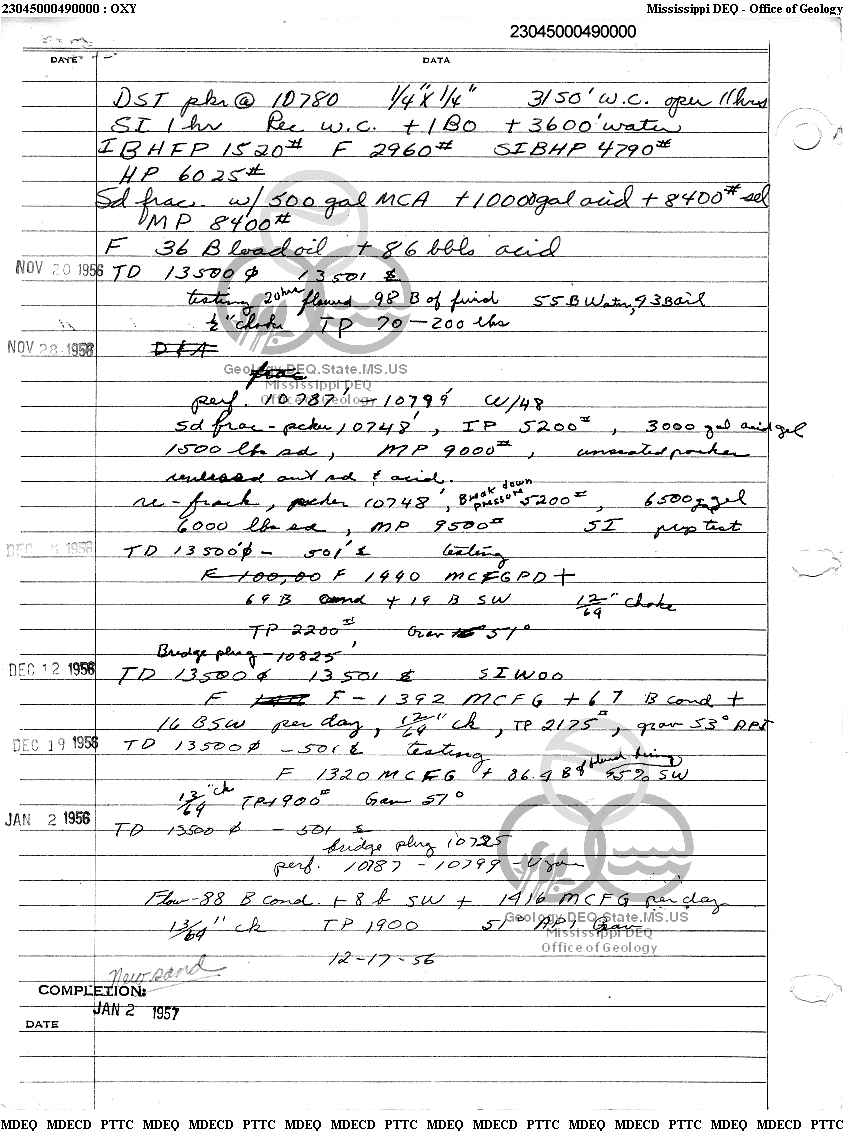 23045000490000 : OXY
Mississippi DEQ - Office of Geology
23045000490000
DATE
DATA
DST pkr @ 10780 1/4" x 1/4" 3150' W.C. open 11hrs
SI 1 hr Rec W.C. + 1 BO + 3600' water
IBHFP 1520# F 2960# SIBHP 4790#
HP 6025#
Sd frac. w/ 500 gal MCA + 1000 gal acid + 8400#
MP 8400#
F 36 B load oil + 86 bbls acid
NOV 20 1956 TD 13500 φ 13501 E
testing 20 hrs flowed 98 B of fluid 55 B Water, 43 B oil
1/2" choke TP 70 - 200 lbs
NOV 28 1956 D & A
frac
Geology.DEQ.State.MS.US
Mississippi DEQ
Office of Geology
perf. 10787' - 10799' W/48
Sd frac - pcker 10748', IP 5200#, 3000 gal acid gel
1500 lbs sd, MP 9000#, unseated packer
reversed out sd & acid.
re-frack, pcker 10748', Break down pressure 5200#, 6500 g gel
6000 lbs sd, MP 9500# SI prep test
DEC 5 1956 TD 13500'φ - 501'E testing
F 100,00 F 1440 MCFGPD +
69 B cond + 19 B SW 12/64" choke
TP 2200# Grav 51°
Bridge plug - 10825'
DEC 12 1956 TD 13500 φ 13501 E SIWOO
F F - 1392 MCFG + 67 B cond +
16 BSW per day, 12/64" ck, TP 2175#, grav 53° API
DEC 19 1956 TD 13500 φ - 501 E testing
F 1320 MCFG + 86.4 B 95% SW
13/64" ck TP 1900# Grav 51°
JAN 2 1956 TD 13500 φ - 501 E
bridge plug 10725
perf. 10787 - 10799 -
Flow - 88 B cond. + 8 b SW + 1416 MCFG per day
13/64" ck TP 1900 51° API Grav
Geology.DEQ.State.MS.US
Mississippi DEQ
Office of Geology
12-17-56
New sand
COMPLETION:
JAN 2 1957
DATE
MDEQ MDECD PTTC MDEQ MDECD PTTC MDEQ MDECD PTTC MDEQ MDECD PTTC MDEQ MDECD PTTC MDEQ MDECD PTTC